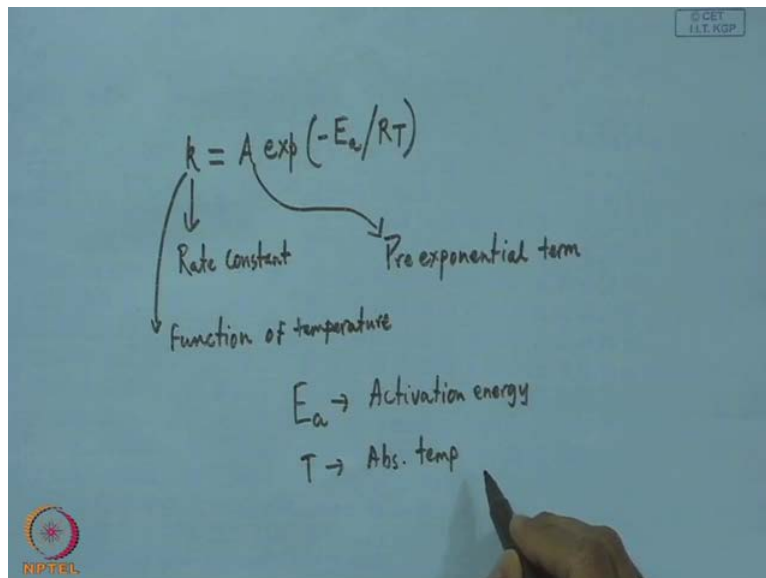 © CET
I.I.T. KGP
k = A exp (-Ea/RT)
Rate constant
Pre exponential term
Function of temperature
Ea → Activation energy
T → Abs. temp
NPTEL